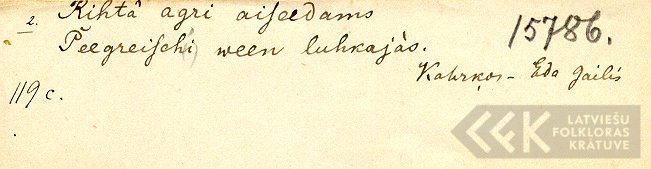 2. Rihtâ agri aiseedams
15786.
Peegreisehi ween luhkajàs.
Kahrķos - Eda Gailis
119 c.
LATVIEŠU
FOLKLORAS
KRĀTUVE